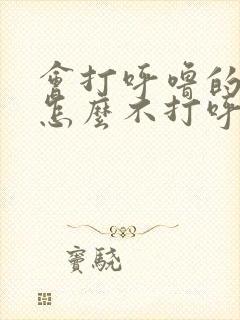 會打呼嚕的
怎麼不打呼
竇驍